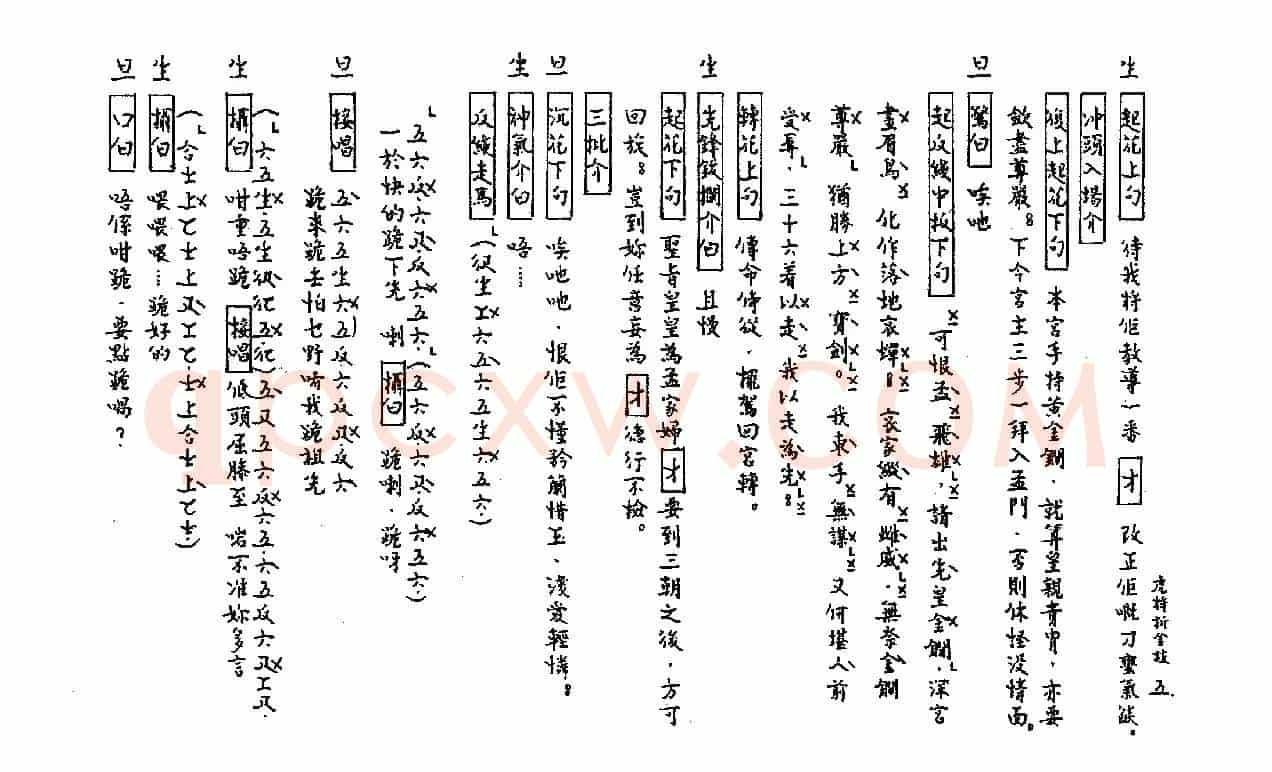 生 起花上句 待我將佢教導一番 才 改正佢嘅刁蠻氣燄。
五.
冲頭入場介
復上起花下句 本宮手持黃金鐧、就算皇親貴胄,亦要
歛盡尊嚴。下令宮主三步一拜入孟門.否則休怪没情面。
旦 驚白 唉吔
起反綫中板下句 可恨孟、飛雄,請出先皇金鐧、深宮
畫眉鳥 化作落地哀蟬。哀家縱有 雌威.無奈金鐧
尊嚴 猶勝上方、寶劍。我束手、無謀、又何堪人前
受辱、三十六着以走、我以走為先。
轉花上句 傳命侍從、擺駕回宮轉。
生 先鋒鈸擱介白 且慢
起花下句 聖旨皇皇為孟家婦 才 要到三朝之後,方可
回旋。豈到妳任意妄為 才 德行不檢。
三批介
旦 沉花下句 唉吔吔、恨佢不懂矜蘭惜玉、淺愛輕憐。
生 神氣介白 唔……
反綫走馬 (伬生工六五六五生六五六.)
五六反.六乂反六五六.(五六反六乂反六五六.)
一於快的跪下先 喇 攝白 跪喇、跪呀
旦 接唱 五六五生六五反.六反乂.反六
跪來跪去怕乜野啫我跪祖先
生 (六五生.五生伬仩五仩)五乂五六反六五.六五反六乂工乂.
攝白 咁重唔跪 接唱 低頭屈膝至 啱不准妳多言
(合士上乙士上乂工乙.士上合士上乙士.)
生 攝白 喂喂喂…跪好的
旦 口白 唔係咁跪.要點跪嗎?
qpcxw.com